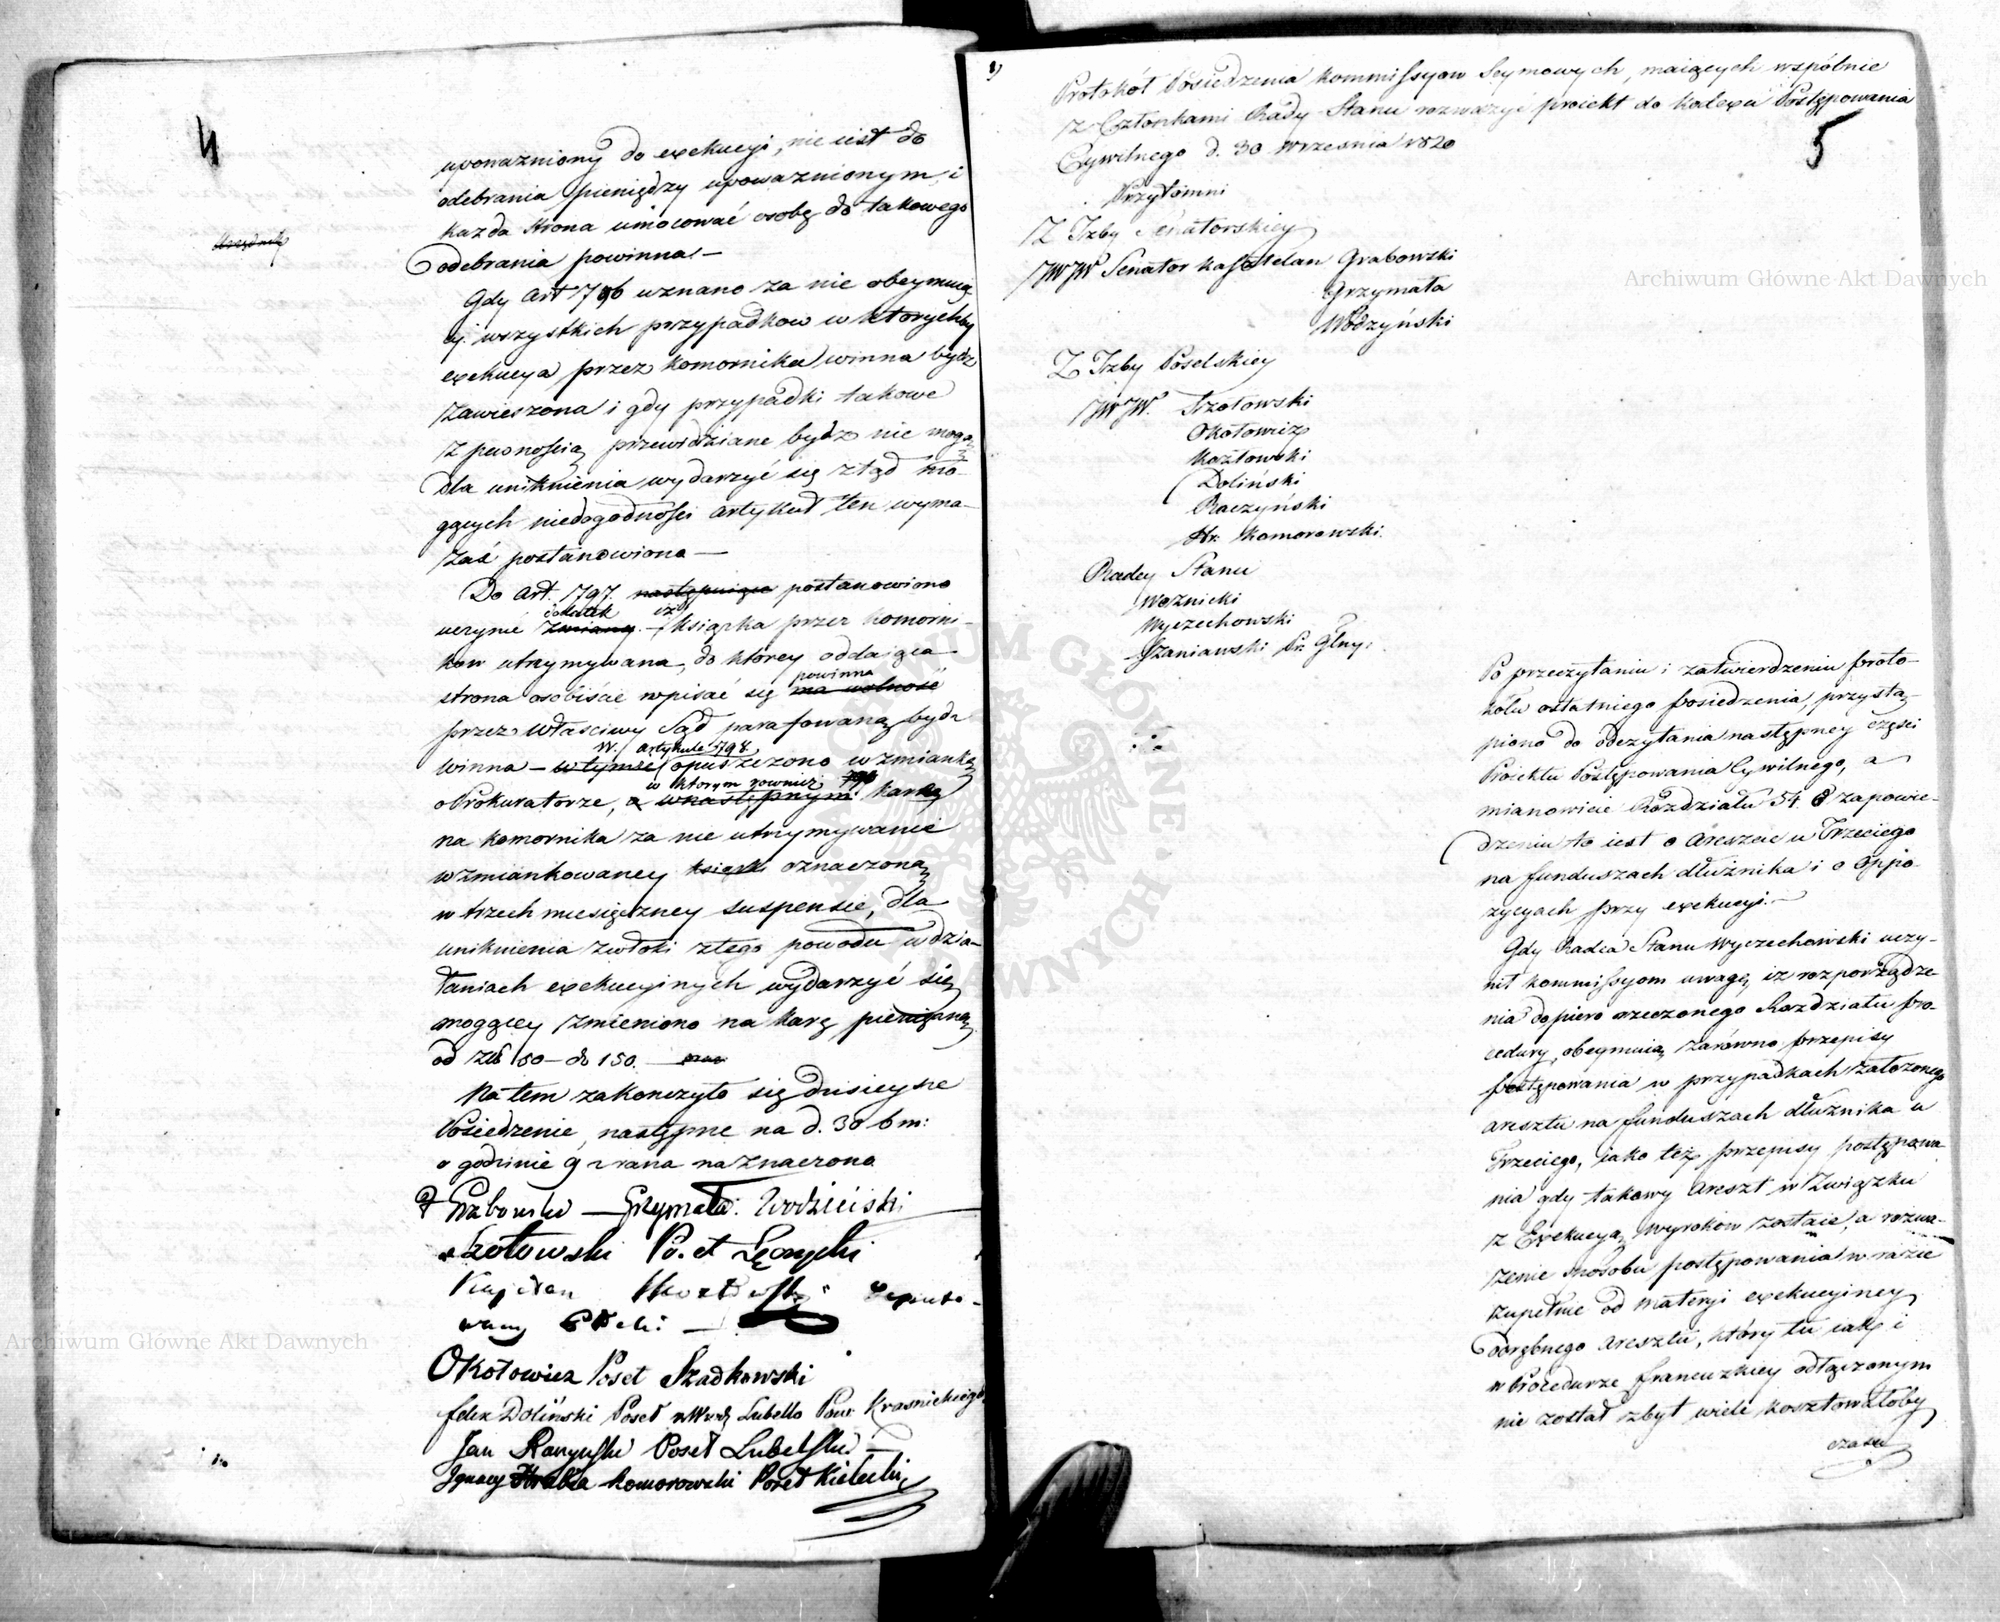 4
upoważniony do exekucyi, nie iest do
odebrania pieniędzy upoważnionym, i
każda strona umocować osobę do takowego
odebrania powinna. —
Gdy Art 796 uznano za nie obeymuią-
cy wszystkich przypadkow w ktorychby
exekucya przez komornika winna bydz
zawieszona i gdy przypadki takowe
z pewnością przewidziane bydz nie mogą
dla uniknienia wydarzyć się ztąd mo-
gących niedogodności artykuł ten wyma-
zać postanowiono —
Do Art. 797. następuiące postanowiono
dodatek iż
uczynić zmianę. — książka przez komorni-
kow utrzymywana, do ktorey oddaiąca
powinna
strona osobiście wpisać się ma wolność
przez Właściwy Sąd parafowaną bydz
W artykule 798
winna — w tymże opuszczono wzmiankę
w ktorym rownież
o Prokuratorze, a w następnym 798 karę
na komornika za nie utrzymywanie
wzmiankowaney książki oznaczoną
w trzech miesięczney suspensie, dla
uniknienia zwłoki z tego powodu w dzia-
łaniach exekucyinych wydarzyć się
mogącey zmieniono na karę pieniężną
od Złł 50 — do 150. —
Na tem zakończyło się dzisieysze
Posiedzenie, następne na d. 30 b m:
o godzinie 9 z rana naznaczono
Grabowski — Grzymała: Wodziński
Szołowski Po.et Łęczycki
Kapitan Kozłowski Deputo-
wany
Okołowicz Poseł Szadkowski
felix Doliński Poseł z Wwdz Lubello Pow Krasnickiego
Jan Raczyński Poseł Lubelski —
Ignacy Hrabia Komorowski Poseł Kielecki
5
Protokół Posiedzenia kommissyow Seymowych, maiących wspólnie
z Członkami Rady Stanu rozważyć proiekt do kodexu Postępowania
Cywilnego d. 30 Września 1820
Przytomni
Z Izby Senatorskiey
JWJW Senator Kasztelan Grabowski
Grzymała
Wodzyński
Z Izby Poselskiey
JWJW. Szołowski
Okołowicz
Kozłowski
Doliński
Raczyński
Hr. Komorowski.
Radcy Stanu
Woźnicki
Wyczechowski
Szaniawski Pr. Glny.
Po przeczytaniu i zatwierdzeniu proto-
kółu ostatniego posiedzenia, przystą-
piono do odczytania następney części
Proiektu Postępowania Cywilnego, a
mianowicie Rozdziału 54. O zapowie-
dzeniu to iest o Areszcie u Trzeciego
na funduszach dłużnika i o oppo-
zycyach przy exekucyi. —
Gdy Radca Stanu Wyczechowski uczy-
nił kommissyom uwagę, iż rozporządze-
nia dopiero rzeczonego Rozdziału pro-
cedury, obeymuią zarówno przepisy
postępowania w przypadkach założonego
aresztu na funduszach dłużnika u
Trzeciego, iako też przepisy postępowa-
nia gdy takowy Areszt w Związku
z Exekucyą Wyroków zostaie, a rozwa-
żenie sposobu postępowania w razie
zupełnie od materyi exekucyiney
odrębnego aresztu, który tu iak i
w Procedurze francuzkiey odłączonym
nie został zbyt wiele kosztowałoby
czasu
Archiwum Główne Akt Dawnych
Archiwum Główne Akt Dawnych
ARCHIWUM GŁÓWNE AKT DAWNYCH